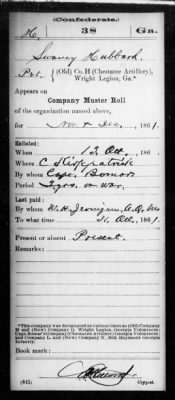 (Confederate.)
H. 38 Ga.
Swancy Hubbard
Pvt. (Old) Co. H (Chestatee Artillery), Wright Legion, Ga.*
Appears on
Company Muster Roll
of the organization named above,
for Nov & Dec, 1861.
Enlisted:
When 12 Oct, 186
Where C Kirkpatrick
By whom Capt. Bomar
Period 3 yrs. or war.
Last paid:
By whom W. H. Jernigan, A.Q.M.
To what time 31 Oct, 1861.
Present or absent Present.
Remarks:
*This company was designated at various times as (Old) Company
H and (New) Company G, Wright Legion, Georgia Volunteers;
and Company L and (New) Company N, 38th Regiment Georgia
Infantry.
Book mark:
(642)
Copyist.